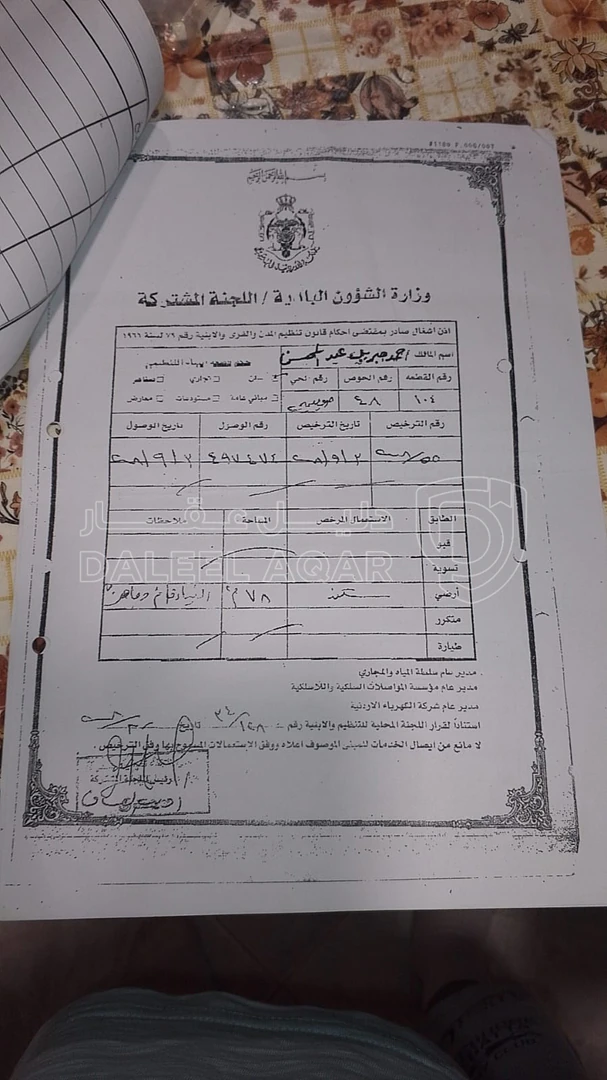 بسم الله الرحمن الرحيم
وزارة الشؤون البلدية / اللجنة المشتركة
اذن اشغال صادر بمقتضى احكام قانون تنظيم المدن والقرى والابنية رقم ٧٩ لسنة ١٩٦٦
اسم المالك / احمد جبريل عبد المحسن
رقم القطعه رقم الحوض رقم الحي سكن تجاري
١٠٤ ٤٨ مباني عامة مستودعات معارض
رقم الترخيص تاريخ الترخيص رقم الوصول تاريخ الوصول
٤٩٧٤٧٤
الطابق الاستعمال المرخص المساحة ملاحظات
قبو
تسوية
أرضي سكن ٧٨ م٢ البناء قائم
متكرر
طيارة
دليل عقار
DALEEL AQAR
مدير عام سلطة المياه والمجاري
مدير عام مؤسسة المواصلات السلكية واللاسلكية
مدير عام شركة الكهرباء الاردنية
استناداً لقرار اللجنة المحلية للتنظيم والابنية رقم تاريخ
لا مانع من ايصال الخدمات للمبنى الموصوف اعلاه ووفق الإستعمالات المسموح بها وفق الترخيص.
رئيس اللجنة المشتركة